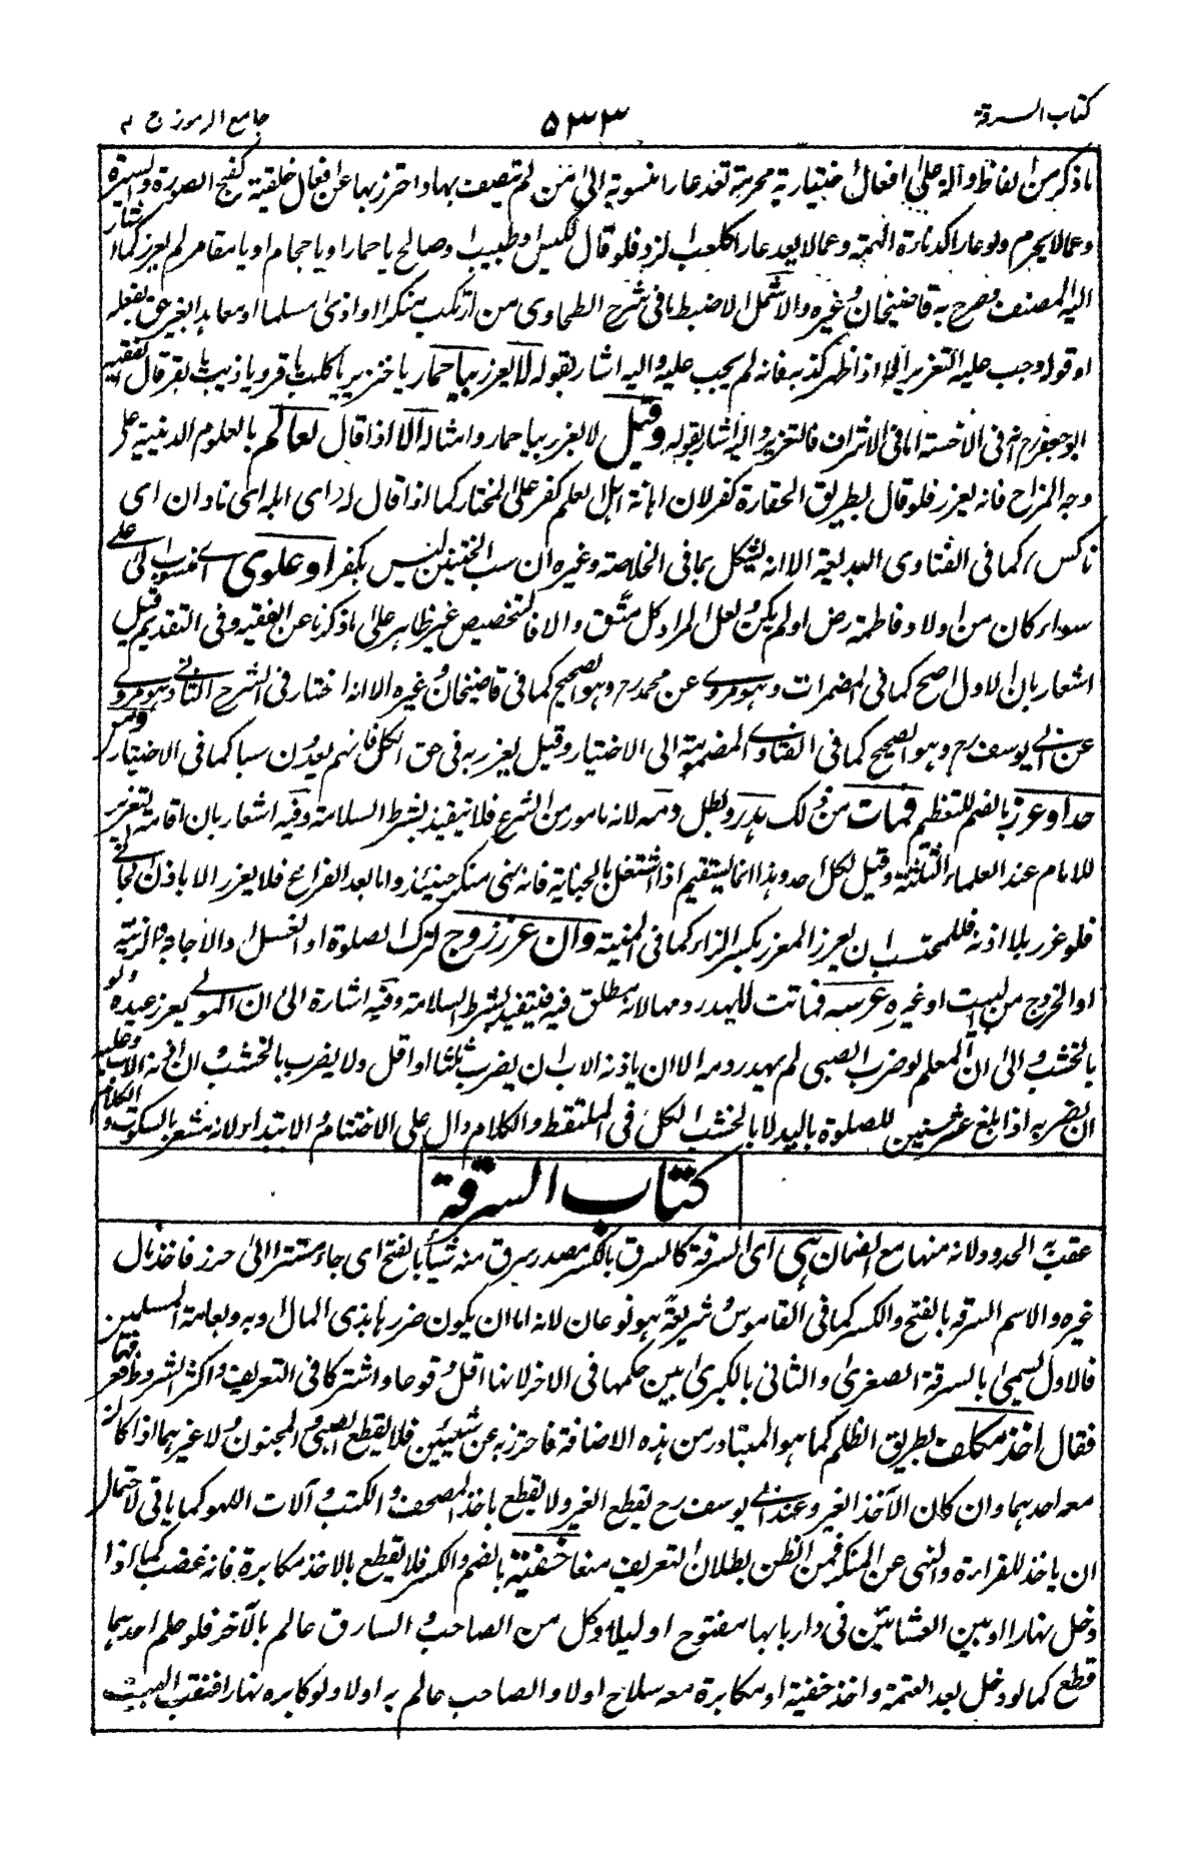 كتاب السرقة ٥٣٣ جامع الرموز ج ٢
ما ذكر من الفاظ دالة على افعال اختيارية محرمة تعد عارا منسوبة الى من لم يتصف بها واحترز بها عن افعال خلقية كقبح الصورة والسيرة
وعما لا يحرم ولو عارا كدناءة الهمة وعما لا يعد عارا كلعب النرد فلو قال لكيس او طبيب او صالح يا حمار او يا حجام او يا مقامر لم يعزر كما اشار
اليه المصنف وصرح به قاضيخان وغيره والاشمل الاضبط ما فى شرح الطحاوى من ارتكب منكرا او اذى مسلما او معاهدا بغير حق بفعله
او قوله وجب عليه التعزير الا اذا ظهر كذبه فانه لم يجب عليه واليه اشار بقوله لا يعزر بيا حمار يا خنزير يا كلب يا قرد يا ذئب يا بقر قال الفقيه
ابو جعفر رح انه فى الاخسة اما فى الاشراف فالتعزير واليه اشار بقوله وقيل لا يعزر بيا حمار وامثاله الا اذا قال لعالم بالعلوم الدينية على
وجه المزاح فانه يعزر فلو قال بطريق الحقارة كفر لان اهانة اهل العلم كفر على المختار كما اذا قال له اى ابله اى نادان اى
ناكس كما فى الفتاوى البديعية الا انه يشكل بما فى الخلاصة وغيره ان سب الختنين ليس بكفر او علوى اى منسوب الى على
سواء كان من اولاد فاطمة رض او لم يكن ولعل المراد كل متق والا فالتخصيص غير ظاهر على ما ذكرنا عن الفقيه وفى التقديم قيل
اشعار بان الاول اصح كما فى المضمرات وهو مروى عن محمد رح وهو الصحيح كما فى قاضيخان وغيره الا انه اختار فى الشرح الثانى وهو مروى
عن ابى يوسف رح وهو الصحيح كما فى الفتاوى المضمومة الى الاختيار وقيل يعزر به فى حق الكل فانهم يعدون سبا كما فى الاختيار ومن
حد او عزر بالضم للتعظيم فمات من ذلك هدر وبطل دمه لانه مامور من الشرع فلا يتقيد بشرط السلامة وفيه اشعار بان اقامة التعزير
للامام عند العلماء الثلثة وقيل لكل احد وهذا انما يستقيم اذا اشتغل بالجناية فانه نهى منكر حينئذ واما بعد الفراغ فلا يعزر الا باذن الجانى
فلو عزر بلا اذنه فللمحتسب ان يعزر المعزر بكسر الزاء كما فى المنية وان عزر زوج لترك الصلوة او الغسل او الاجابة والزينة
او الخروج من البيت او غيره عرسه فماتت لا يهدر دمها لانه مطلق فيه فيتقيد بشرط السلامة وفيه اشارة الى ان المولى يعزر عبده ولو
بالخشب والى ان المعلم لو ضرب الصبى لم يهدر دمه الا ان ياذنه الاب ان يضرب ثلثا او اقل ولا يضرب بالخشب وان اذنه الاب وعليه
ان يضربه اذا بلغ عشر سنين للصلوة باليد لا بالخشب الكل فى الملتقط والكلام دال على الاختتام والابتداء لانه مشعر بالسكوت والكلام
كتاب السرقة
عقب به الحدود لانه منها مع الضمان هى اى السرقة كالسرق بالكسر مصدر سرق منه شيئا بالفتح اى جاء مستترا الى حرز فاخذ مال
غيره والاسم السرقة بالفتح والكسر كما فى القاموس وشريعة هو نوعان لانه اما ان يكون ضررها بذى المال او به وبعامة المسلمين
فالاول يسمى بالسرقة الصغرى والثانى بالكبرى بين حكمها فى الاخر لانها اقل وقوعا واشتركا فى التعريف واكثر الشروط فعرفها
فقال اخذ مكلف بطريق الظلم كما هو المتبادر من هذه الاضافة فاحترز به عن شيئين فلا يقطع الصبى والمجنون ولا غيرهما اذا كان
معه احدهما وان كان الآخذ الغير وعند ابى يوسف رح يقطع الغير ولا يقطع باخذ المصحف والكتب وآلات اللهو كما ياتى لاحتمال
ان ياخذ للقراءة والنهى عن المنكر فمن الظن بطلان التعريف منعا خفية بالضم والكسر فلا يقطع بالاخذ مكابرة فانه غصب كما اذا
دخل نهارا او بين العشائين فى دار بابها مفتوح او ليلا وكل من الصاحب والسارق عالم بالآخر فلو علم احدهما
قطع كما لو دخل بعد العتمة واخذ خفية او مكابرة معه سلاح او لا والصاحب عالم به او لا ولو كابره نهارا فنقب البيت